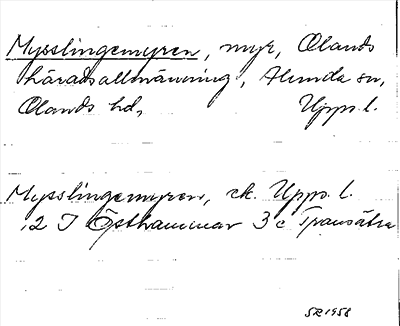 Mysslingemyren, myr, Olands
häradsallmänning, Alunda sn,
Olands hd, Upps. l.
Mysslingemyren, ek. Upps. l.
12 I Östhammar 3 c Transätra
SR 1958